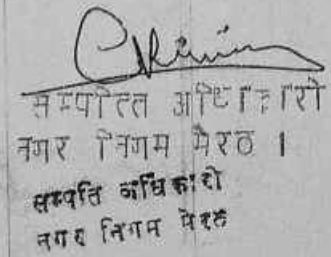 सम्पत्ति अधिकारी
नगर निगम मेरठ ।
सम्पति अधिकारी
नगर निगम मेरठ